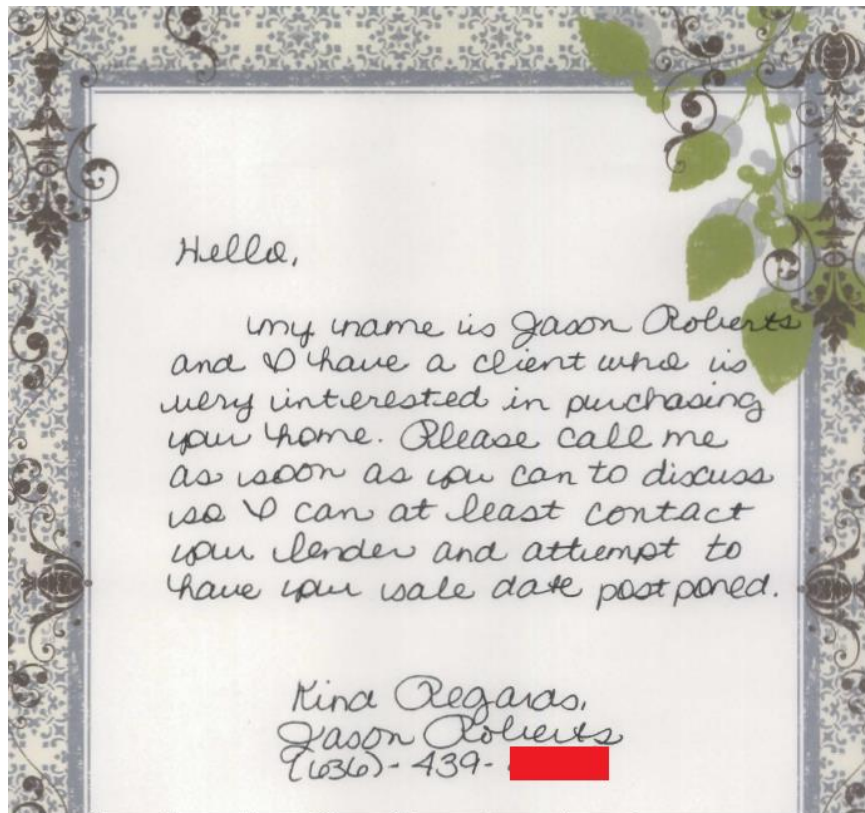 Hello,
my name is Jason Roberts
and I have a client who is
very interested in purchasing
your home. Please call me
as soon as you can to discuss
so I can at least contact
your lender and attempt to
have your sale date postponed.
Kind Regards,
Jason Roberts
(636)-439-